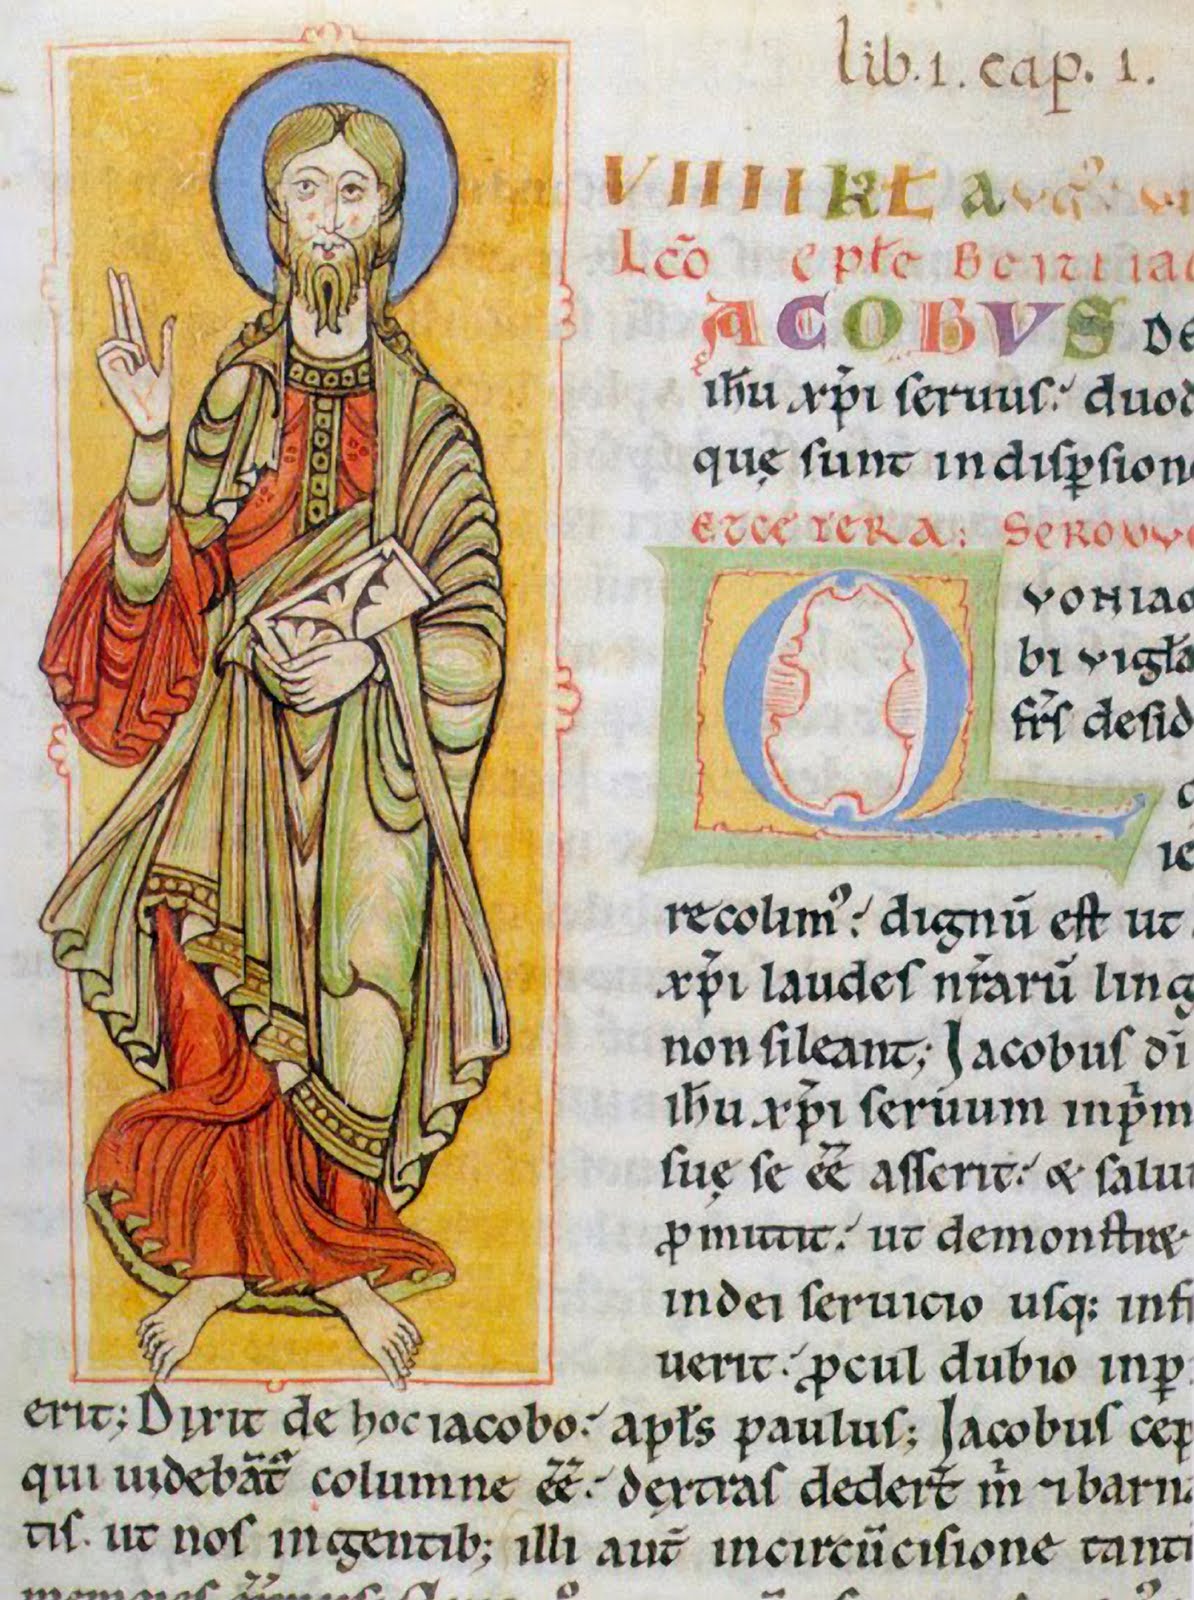 lib. 1. cap. 1.
VIIII kł a
Lcō epłe
IACOBVS De
ihu xp̄i seruus: duod
quę sunt indisp̱sion
etcetera: Sero
Q voniā
bi vigła
frs̄ desid
recolim⁹: dignū est ut
xp̄i laudes nr̄arū ling
non sileant; Jacobus di
ihu xp̄i seruum inp̄m
suę se ēē asserit: & salu
ꝓmittit: ut demonstra
indei seruicio usq: inf
uerit: ꝓcul dubio inp
erit; Dixit de hoc iacobo: apłs paulus; Jacobus cep
qui uidebāt columne ēē: dextras dedert̄ m 7 barna
tis. ut nos ingentib; illi aut̄ incircūcisione tanti